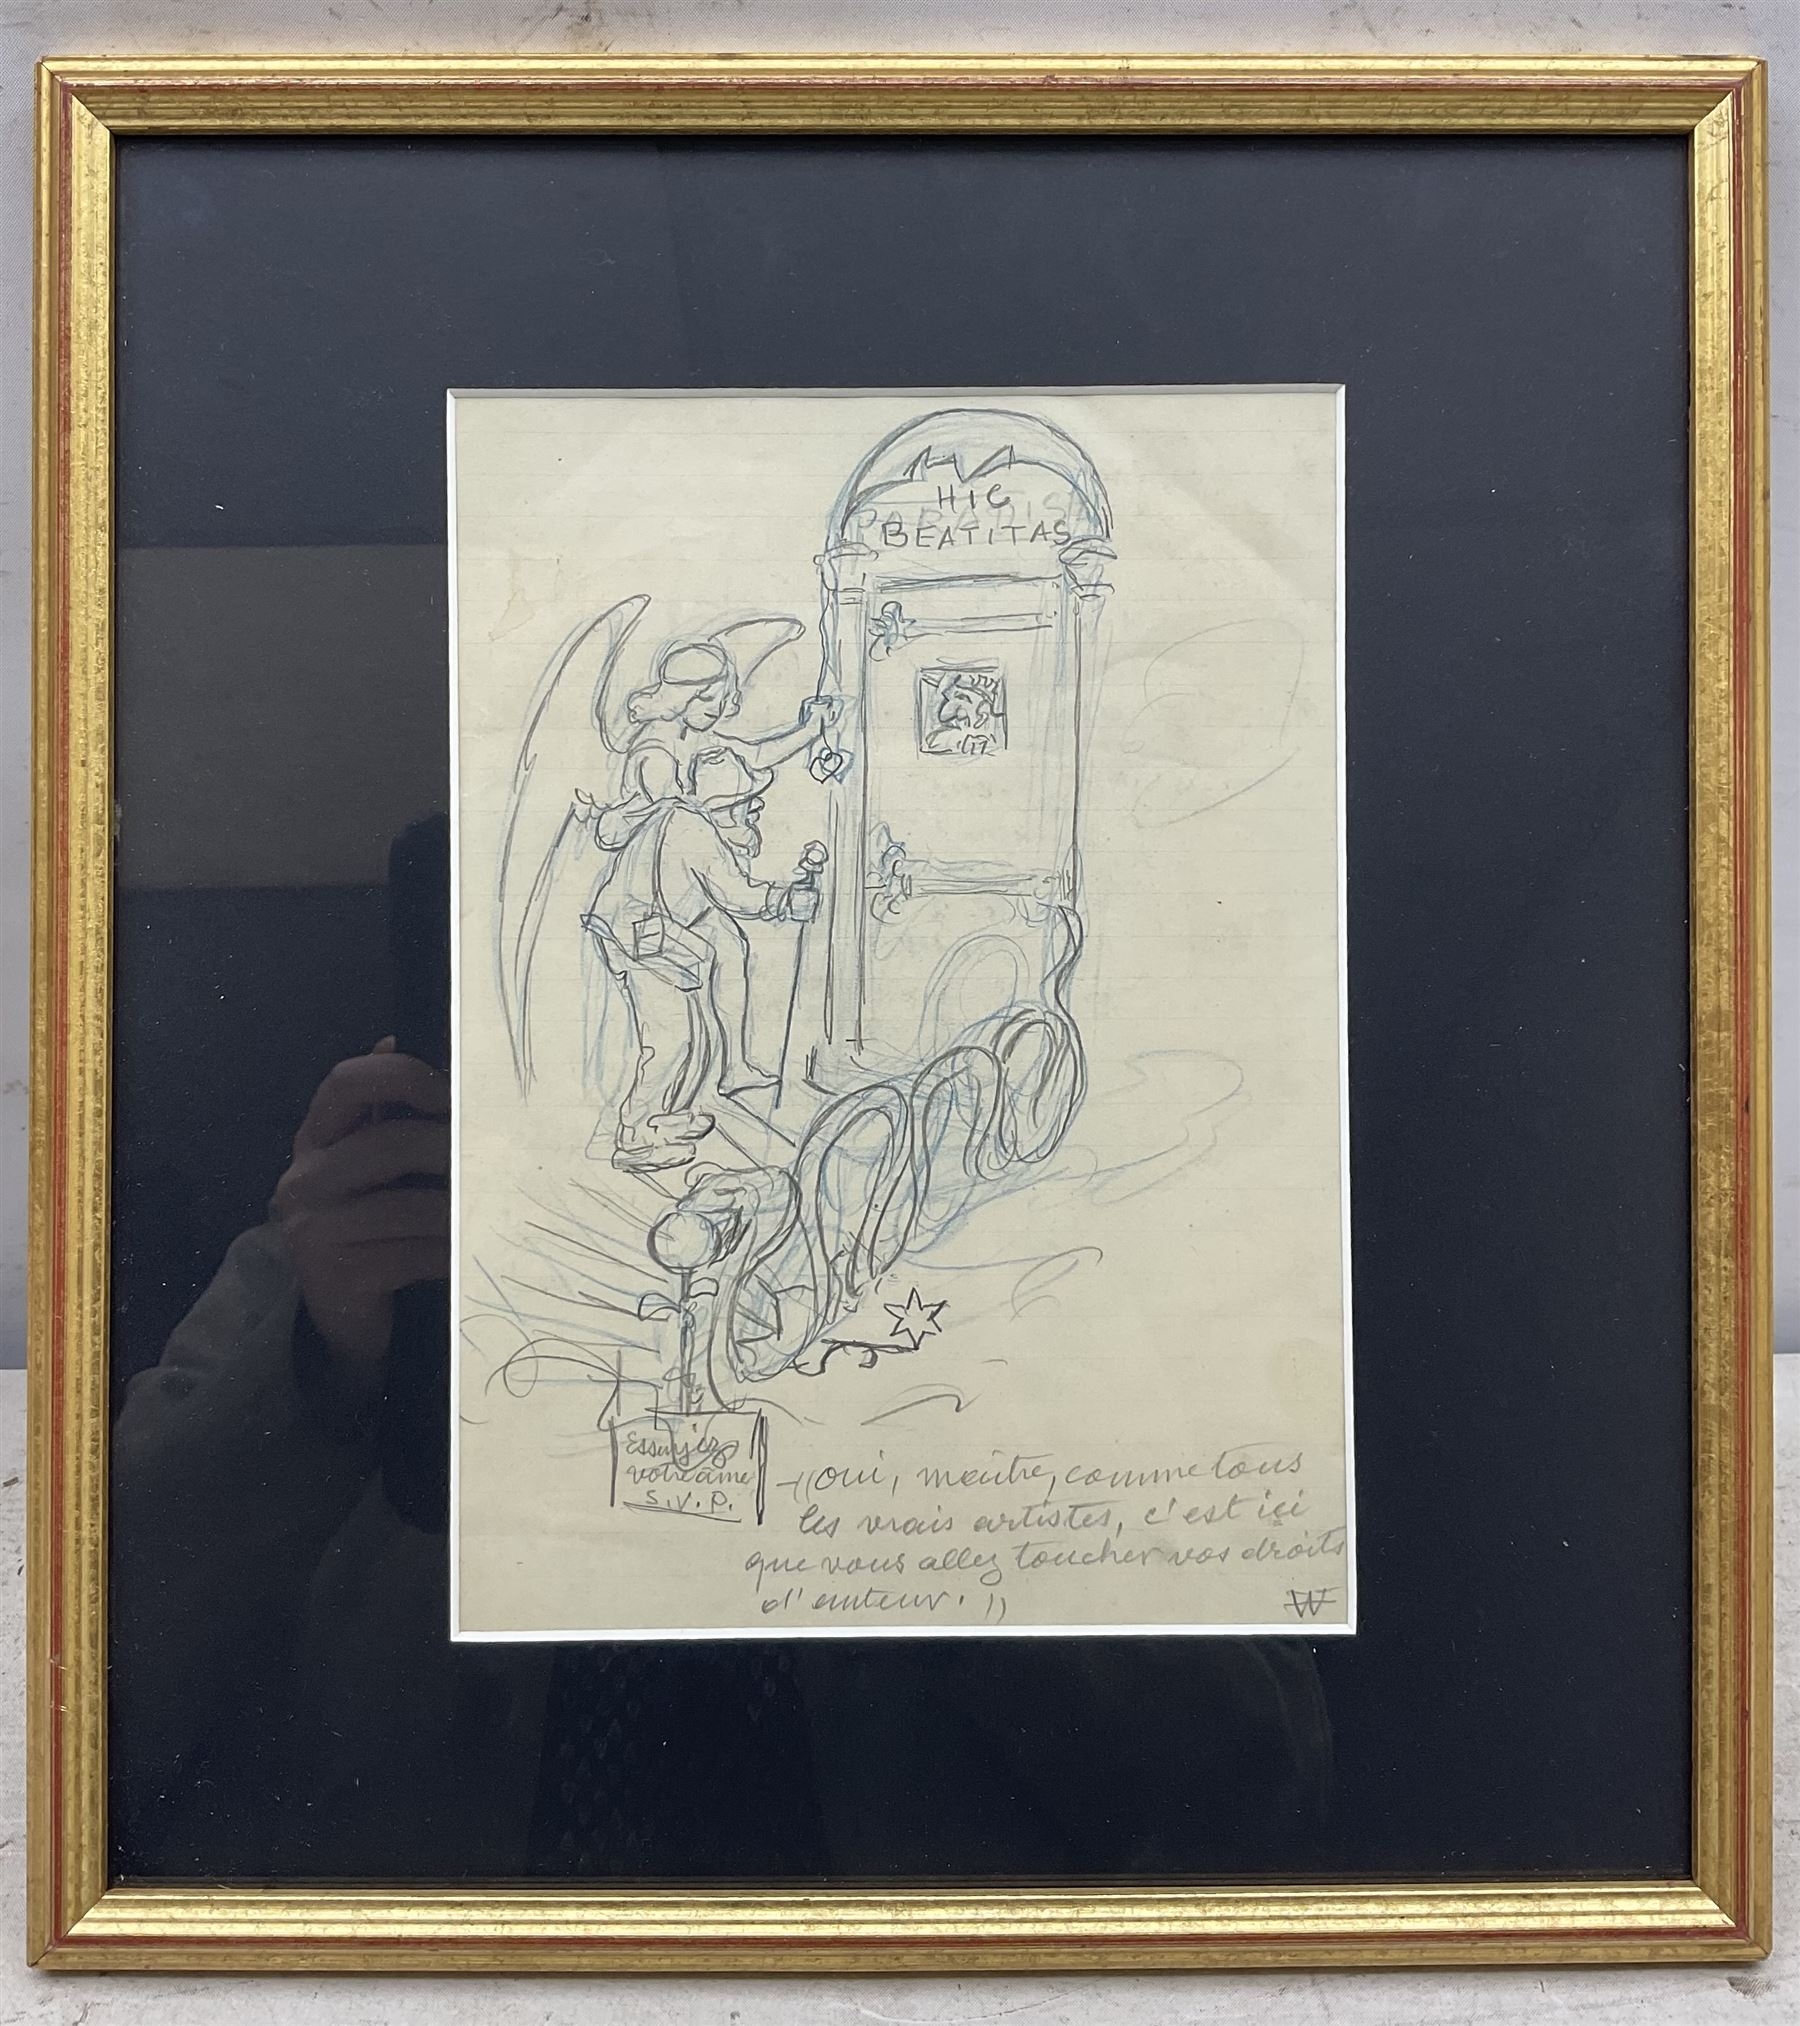 HIC
BEATITAS
PARADIS
Essuyez
votre âme
S.V.P.
— "Oui, maître, comme tous
les vrais artistes, c'est ici
que vous allez toucher vos droits
d'auteur."
W